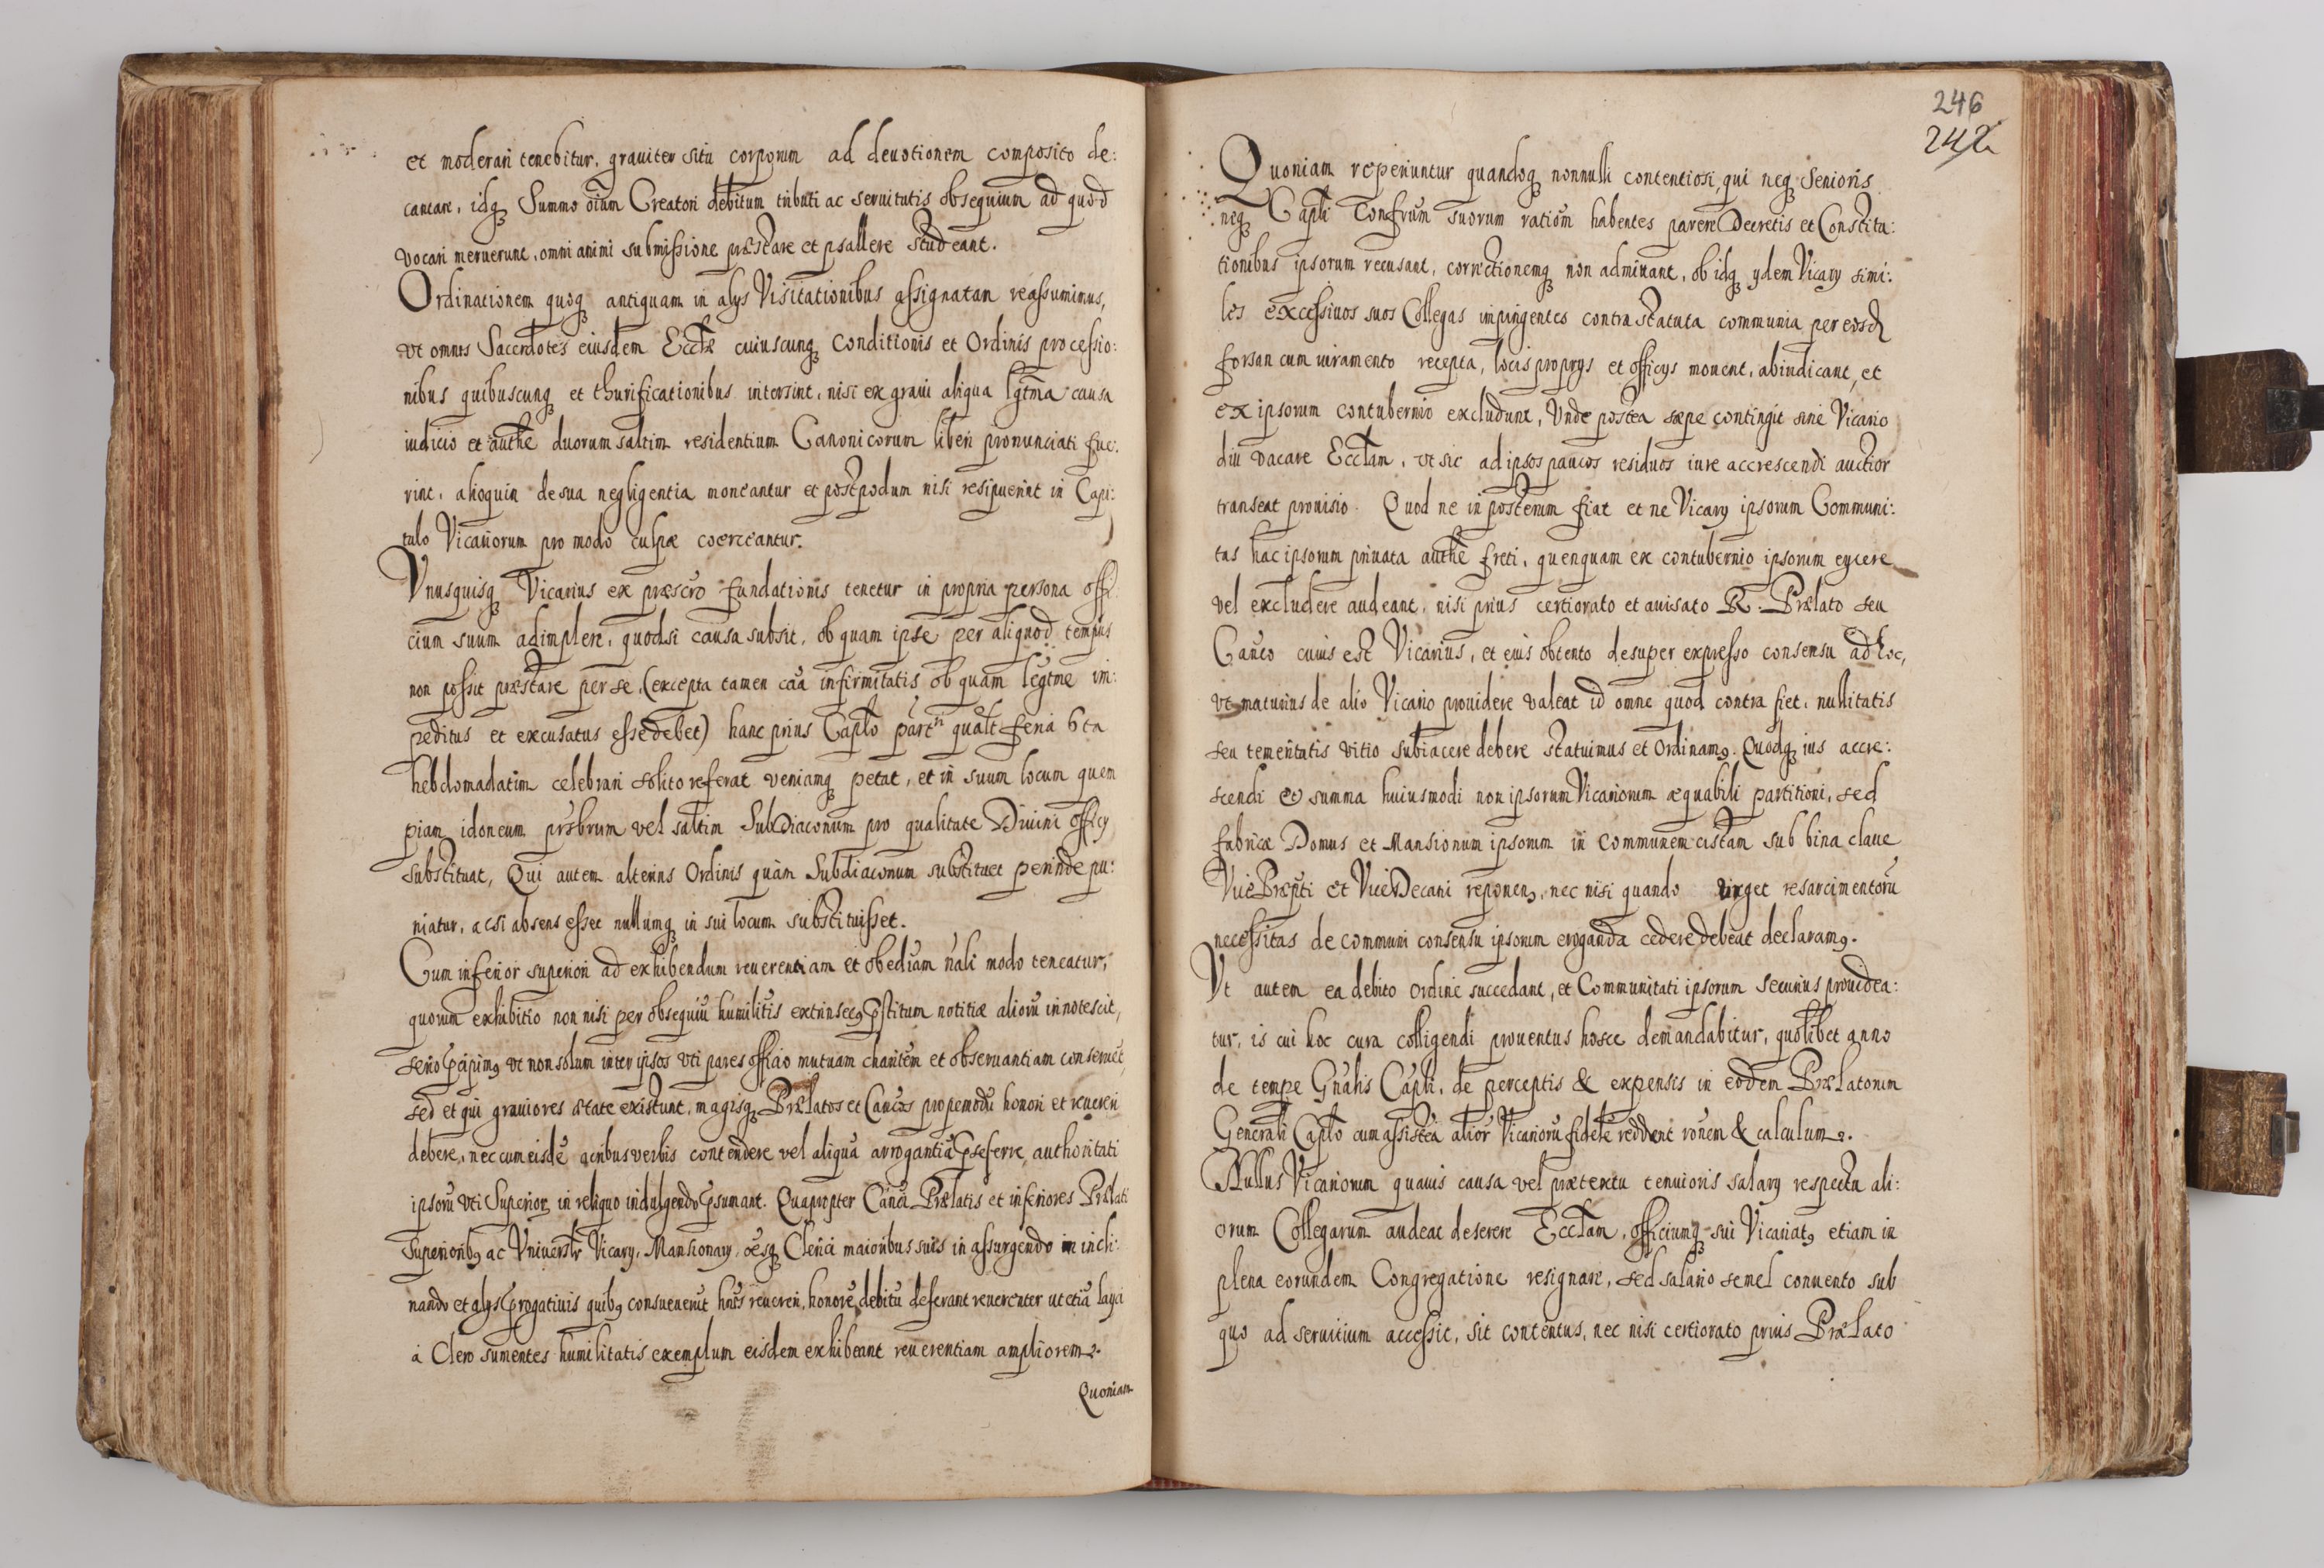 et moderari tenebitur, grauiter situ corporum ad deuotionem composito de:
cantare, idq Summo oium Creatori debitum tributi ac seruitutis obsequium ad quod
vocari meruerunt, omni animi submissione præstare et psallere studeant.
Ordinationem quoq antiquam in alys Visitationibus assignatan reassumimus,
vt omnes Sacerdotes eiusdem Ecctæ cuiuscunq Conditionis et Ordinis processio:
nibus quibuscunq et thurificationibus intersint, nisi ex graui aliqua lgtma causa
iudicio et authe duorum saltim residentium Canonicorum liberi pronunciati fue:
rint, alioquin de sua negligentia moneantur et postpodum nisi resipuerint in Capi:
tulo Vicariorum pro modo culpæ coerceantur.
Vnusquisq Vicarius ex præscro fundationis tenetur in propria persona offi
cium suum adimplere, quodsi causa subsit, ob quam ipse per aliquod tempus
non possit præstare per se, (excepta tamen caa infirmitatis ob quam legtme im:
peditus et excusatus esse debet) hanc prius Caplo partri qualt feria 6ta
hebdomadatim celebrari solito referat veniamq petat, et in suum locum quem
piam idoneum prsbrum vel saltim SubDiaconum pro qualitate Diuini officy
substituat, Qui autem alterius Ordinis quàm Subdiaconum substituet perinde pu:
niatur, acsi absens esset nullumq in sui locum substituisset.
Cum inferior superiori ad exhibendum reuerentiam et obediam n'ali modo teneatur,
quorum exhibitio non nisi per obsequiu humilitis extrinsecq pstitum notitiæ alioru innotescit,
serio pcipimq vt non solum inter ipsos vti pares officio mutuam charitem et obseruantiam conseruet,
sed et qui grauiores ætate existunt, magisq Prælatos et Cancos propemodu honori et reuereri
debere, nec cum eisde acribus verbis contendere vel aliqua arrogantia pseferre, authoritati
ipsoru vti Superior in reliquo indulgendo psumant. Quapropter Canci Prælatis et inferiores Prælati
Superioribq ac Vniuerslr Vicary, Mansionary, oesq Clerici maioribus suis in assurgendo in incli:
nando et alys progatiuis quibq consueuerut hnes reuereri, honore debitu deferant reuerenter ut etia layci
à Clero sumentes humilitatis exemplum eisdem exhibeant reuerentiam ampliorem.
Quoniam
246
242
Quoniam reperiuntur quandoq nonnulli contentiosi, qui neq Senioris
neq Capli Confrum suorum ratiom habentes parere Decretis et Constitu:
tionibus ipsorum recusant, correctionemq non admittant, ob idq ydem Vicary simi:
les excessiuos suos Collegas impingentes contra statuta communia per eosd
forsan cum iuramento recepta, locis proprys et officys mouent, abiudicant, et
ex ipsorum contubernio excludunt, Vnde postea sæpe contingit sine Vicario
diu vacare Ecctam, vt sic ad ipsos paucos residuos iure accrescendi auctior
transeat prouisio. Quod ne in posterum fiat et ne Vicary ipsorum Communi:
tas hac ipsorum priuata authe freti, quenquam ex contubernio ipsorum eycere
vel excludere audeant, nisi prius certiorato et auisato R. Prælato seu
Canco cuius est Vicarius, et eius obtento desuper expresso consensu ad hoc,
vt maturius de alio Vicario prouidere valeat id omne quod contra fiet, nullitatis
seu temeritatis vitio subiacere debere statuimus et Ordinamq. Quodq ius accre:
scendi et summa huiusmodi non ipsorum Vicariorum æquabili partitioni, sed
fabricæ Domus et Mansionum ipsorum in communem cistam sub bina claue
VicePræpti et ViceDecani reponenq, nec nisi quando urget resarcimentoru
necessitas de communi consensu ipsorum eroganda cedere debeat declaramq.
Vt autem ea debito ordine succedant, et Communitati ipsorum securius prouidea:
tur, is cui hoc cura colligendi prouentus hosce demandabitur, quolibet anno
de tempe Gn'alis Cap'li, de perceptis & expensis in eodem Prælatorum
Generali Caplo cum assistea alior Vicarioru fidele reddent ronem & calculum.
Nullus Vicariorum quauis causa vel prætextu tenuioris salary respectu ali:
orum Collegarum audeat deserere Ecctam, officiumq sui Vicariatq etiam in
plena eorundem Congregatione resignare, sed salario semel conuento sub
quo ad seruitium accessit, sit contentus, nec nisi certiorato prius Prælato